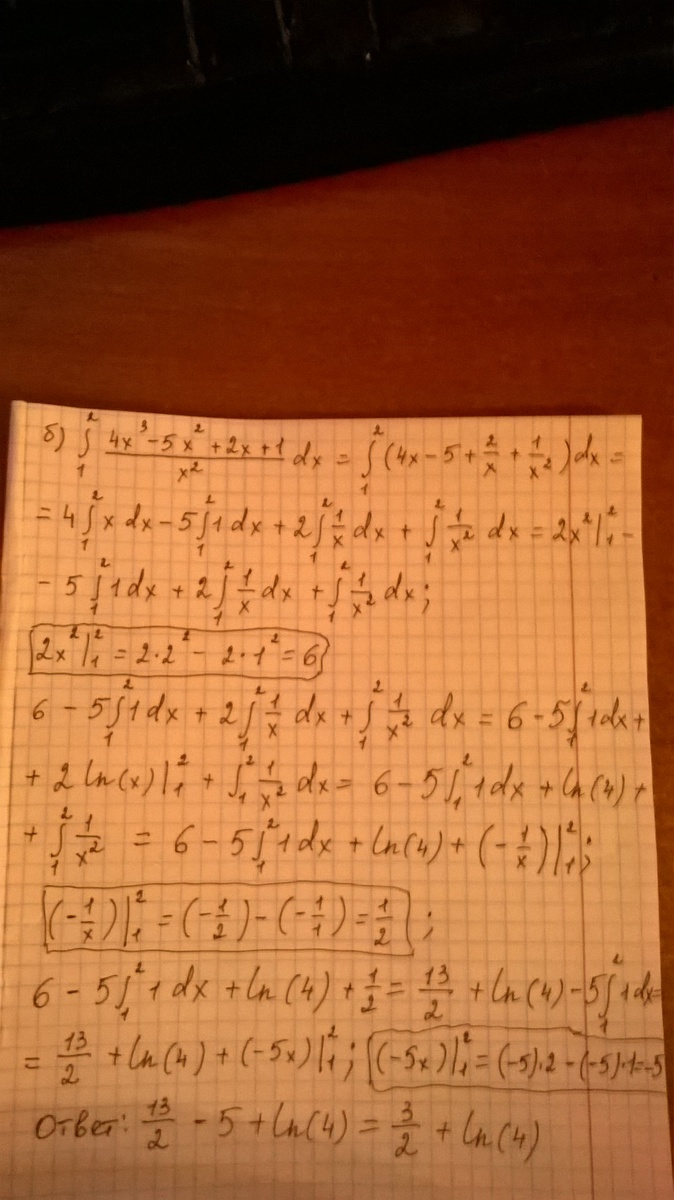 б) ∫₁² (4x³ - 5x² + 2x + 1)/x² dx = ∫₁² (4x - 5 + 2/x + 1/x²) dx =
= 4∫₁² x dx - 5∫₁² 1 dx + 2∫₁² 1/x dx + ∫₁² 1/x² dx = 2x²|₁² -
- 5∫₁² 1 dx + 2∫₁² 1/x dx + ∫₁² 1/x² dx;
2x²|₁² = 2·2² - 2·1² = 6
6 - 5∫₁² 1 dx + 2∫₁² 1/x dx + ∫₁² 1/x² dx = 6 - 5∫₁² 1 dx +
+ 2 ln(x)|₁² + ∫₁² 1/x² dx = 6 - 5∫₁² 1 dx + ln(4) +
+ ∫₁² 1/x² = 6 - 5∫₁² 1 dx + ln(4) + (-1/x)|₁²;
(-1/x)|₁² = (-1/2) - (-1/1) = 1/2;
6 - 5∫₁² 1 dx + ln(4) + 1/2 = 13/2 + ln(4) - 5∫₁² 1 dx =
= 13/2 + ln(4) + (-5x)|₁²; (-5x)|₁² = (-5)·2 - (-5)·1 = -5
Ответ: 13/2 - 5 + ln(4) = 3/2 + ln(4)